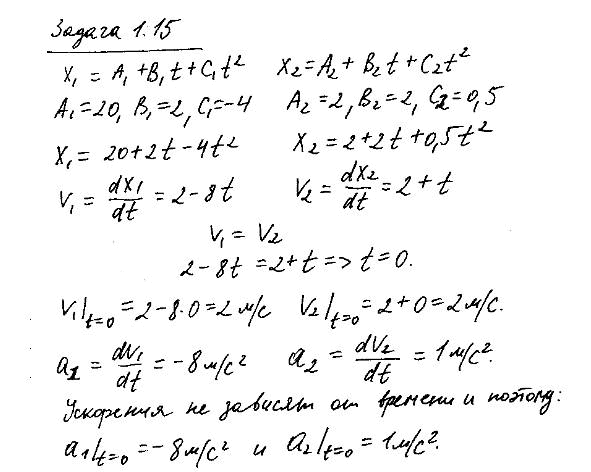 Задача 1.15
x₁ = A₁ + B₁t + C₁t² x₂ = A₂ + B₂t + C₂t²
A₁ = 20, B₁ = 2, C₁ = -4 A₂ = 2, B₂ = 2, C₂ = 0,5
x₁ = 20 + 2t - 4t² x₂ = 2 + 2t + 0,5t²
v₁ = dx₁/dt = 2 - 8t v₂ = dx₂/dt = 2 + t
v₁ = v₂
2 - 8t = 2 + t => t = 0.
v₁|t=0 = 2 - 8·0 = 2 м/с v₂|t=0 = 2 + 0 = 2 м/с.
a₁ = dv₁/dt = -8 м/с² a₂ = dv₂/dt = 1 м/с².
Ускорения не зависят от времени и поэтому:
a₁|t=0 = -8 м/с² и a₂|t=0 = 1 м/с².